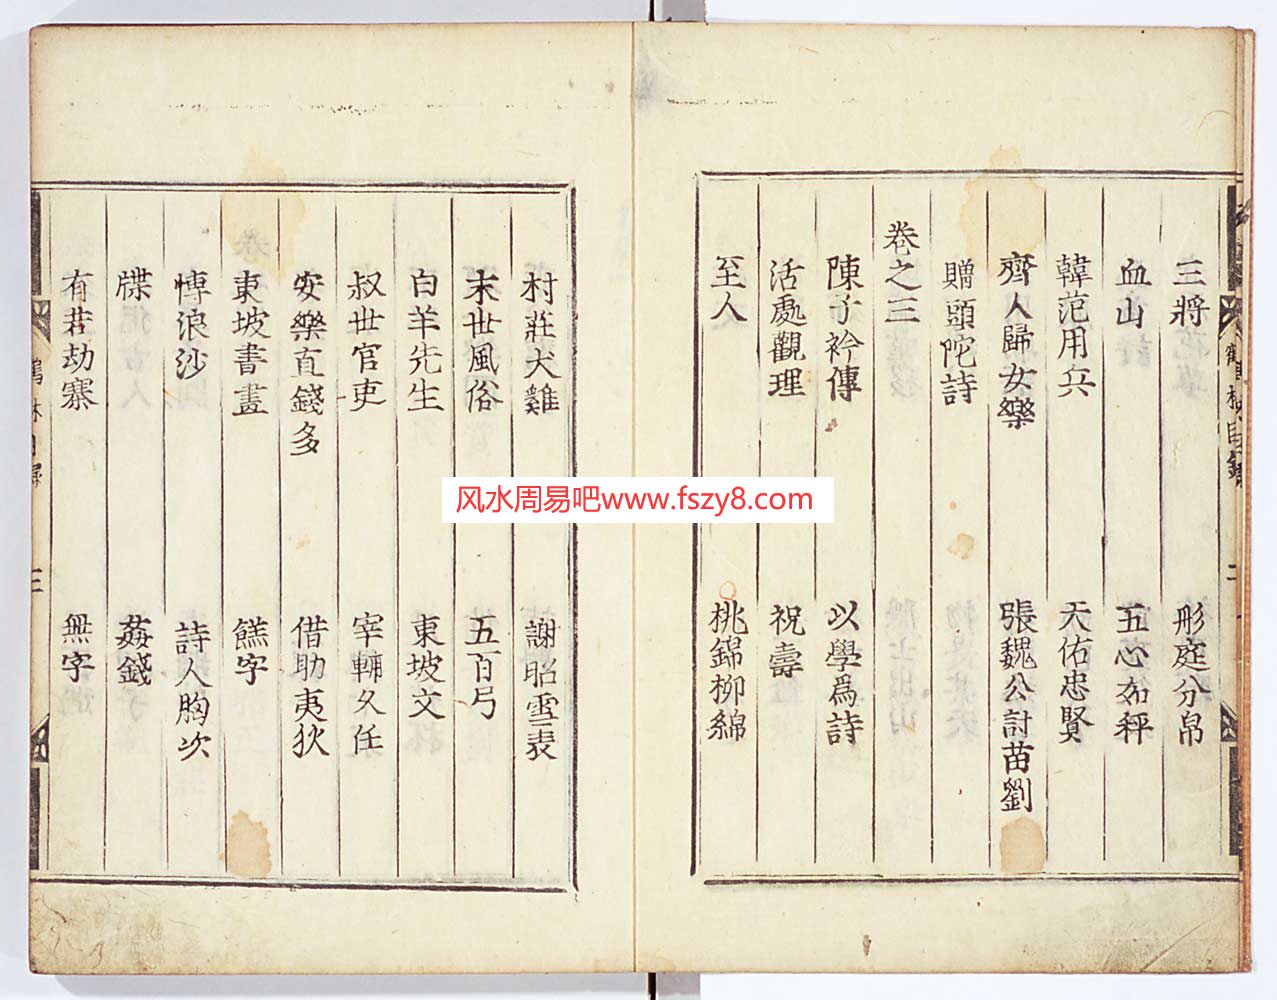 三將 形庭分帛
血山 五心如秤
韓范用兵 天佑忠賢
齊人歸女樂 張魏公討苗劉
贈頭陀詩
卷之三
陳子衿傳 以學爲詩
活處觀理 祝壽
至人 桃錦柳綿
村莊犬雞 謝昭雪表
末世風俗 五百弓
白羊先生 東坡文
叔世官吏 宰輔久任
安樂直錢多 借助夷狄
東坡書畫 饎字
博浪沙 詩人胸次
牒 姦錢
有若劫寨 無字
鶴林目錄
三
风水周易吧www.fszy8.com